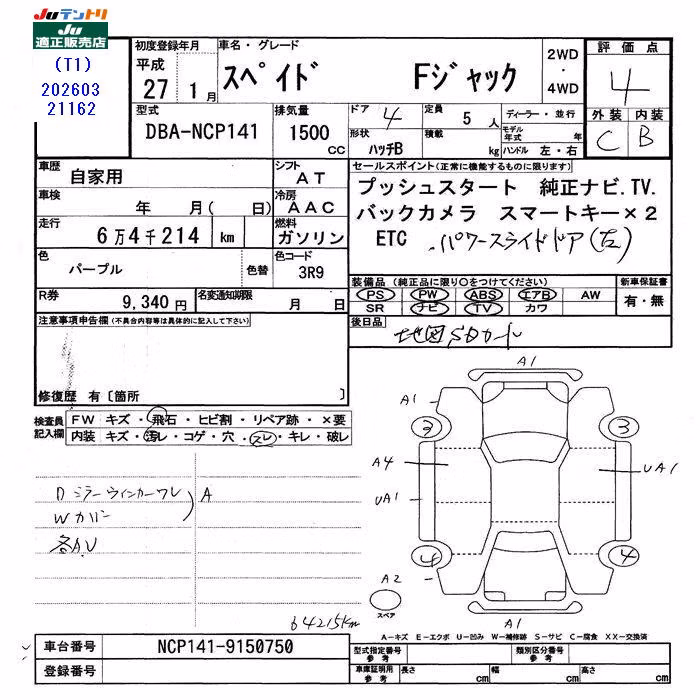 JUテントリ
JU
適正販売店
(T1)
202603
21162
初度登録年月
平成
27 1月
車名・グレード
スペイド Fジャック
2WD
・
4WD
評価点
4
外装 内装
C B
型式
DBA-NCP141
排気量
1500
cc
ドア
4
形状
ハッチB
定員
5 人
積載
kg
ディーラー・並行
モデル年式 年
ハンドル 左・右
車歴
自家用
シフト
AT
車検
年 月( 日)
冷房
AAC
走行
6万4千214 km
燃料
ガソリン
色
パープル
色替
色コード
3R9
R券
9,340円
名変通知期限
月 日
セールスポイント(正常に機能するものに限ります)
プッシュスタート 純正ナビ.TV.
バックカメラ スマートキー×2
ETC .パワースライドドア(左)
装備品(純正品に限り〇をつけてください)
PS PW ABS エアB AW
SR ナビ TV カワ
新車保証書
有・無
後日品
地図SDカード
注意事項申告欄(不具合内容等は具体的に記入して下さい)
修復歴 有〔箇所 〕
検査員
記入欄
FW キズ・飛石・ヒビ割・リペア跡・×要
内装 キズ・汚レ・コゲ・穴・スレ・キレ・破レ
Dミラーウィンカーワレ
Wカバー
A
各A.U
64215km
A1
A1
3
3
A4
UA1
UA1
4
4
A2
スペア
A1
A―キズ E―エクボ U―凹み W―補修跡 S―サビ C―腐食 XX―交換済
車台番号
NCP141-9150750
登録番号
型式指定番号
参考
類別区分番号
参考
車庫証明用
参考
長さ cm
幅 cm
高さ cm